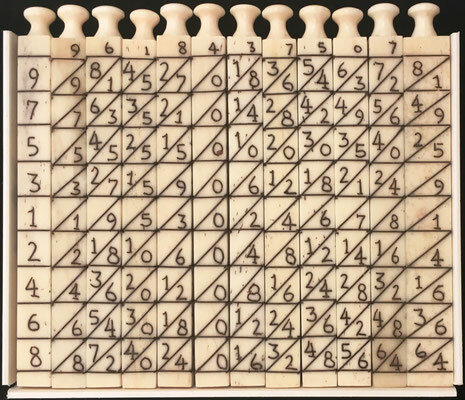 9 6 1 8 4 3 7 5 0 7
9 9 8/1 4/5 2/7 0 1/8 3/6 5/4 6/3 7/2 8/1
7 7 6/3 3/5 2/1 0 1/4 2/8 4/2 4/9 5/6 4/9
5 5 4/5 2/5 1/5 0 1/0 2/0 3/0 3/5 4/0 2/5
3 3 2/7 1/5 9 0 6 1/2 1/8 2/1 2/4 9
1 1 9 5 3 0 2 4 6 7 8 1
2 2 1/8 1/0 6 0 4 8 1/2 1/4 1/6 4
4 4 3/6 2/0 1/2 0 8 1/6 2/4 2/8 3/2 1/6
6 6 5/4 3/0 1/8 0 1/2 2/4 3/6 4/2 4/8 3/6
8 8 7/2 4/0 2/4 0 1/6 3/2 4/8 5/6 6/4 6/4